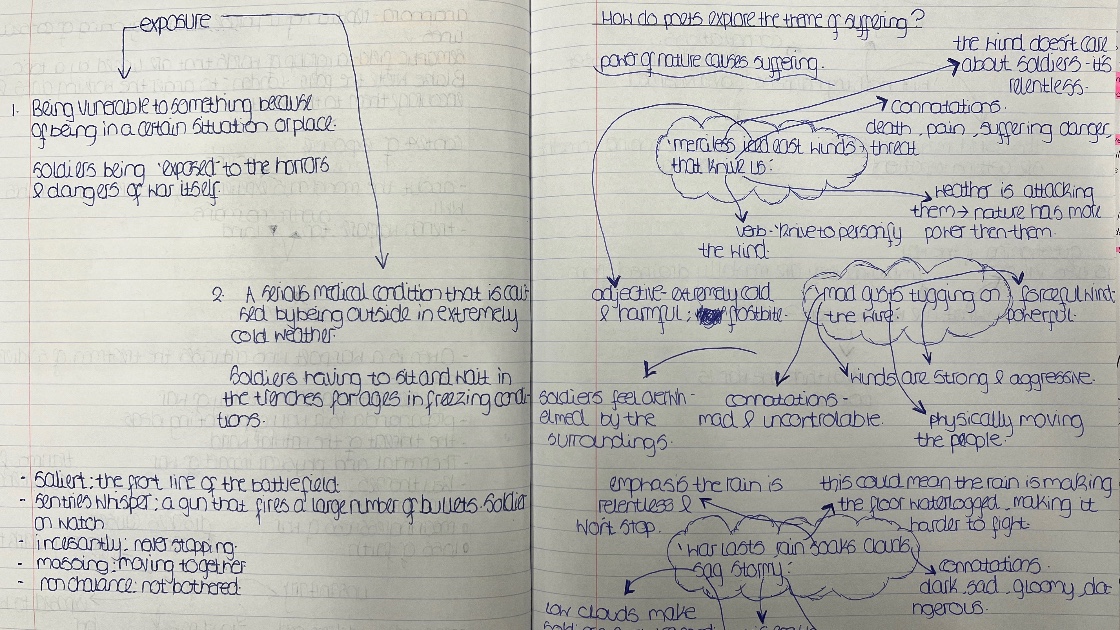 exposure
1. Being vunerable to something because
of being in a certain situation or place.
soldiers being 'exposed' to the horrors
& dangers of war itself.
2. A serious medical condition that is cau-
sed by being outside in extremely
cold weather.
Soldiers having to sit and wait in
the trenches for ages in freezing condi-
tions.
- salient: the front line of the battlefield
- sentries whisper: a gun that fires a large number of bullets. Soldier
on watch
- incesantly: never stopping.
- massing: moving together
- nonchalance: not bothered.
How do poets explore the theme of suffering?
power of nature causes suffering.
the wind doesn't care
about soldiers - its
relentless.
connotations.
death, pain, suffering danger,
threat
'merciless iced east winds
that knive us'.
weather is attacking
them → nature has more
power then them.
verb - 'knive to personify
the wind.
adjective - extremely cold
& harmful, frostbite.
'mad gusts tugging on
the wire'.
forceful wind.
powerful.
winds are strong & aggressive.
soldiers feel overwh-
elmed by the
surroundings.
connotations -
mad & uncontrolable.
physically moving
the people.
emphasis the rain is
relentless &
won't stop.
this could mean the rain is making
the floor waterlogged, making it
harder to fight.
'war lasts, rain soaks, clouds
sag stormy'.
connotations.
dark, sad, gloomy, da-
ngerous.
low clouds make